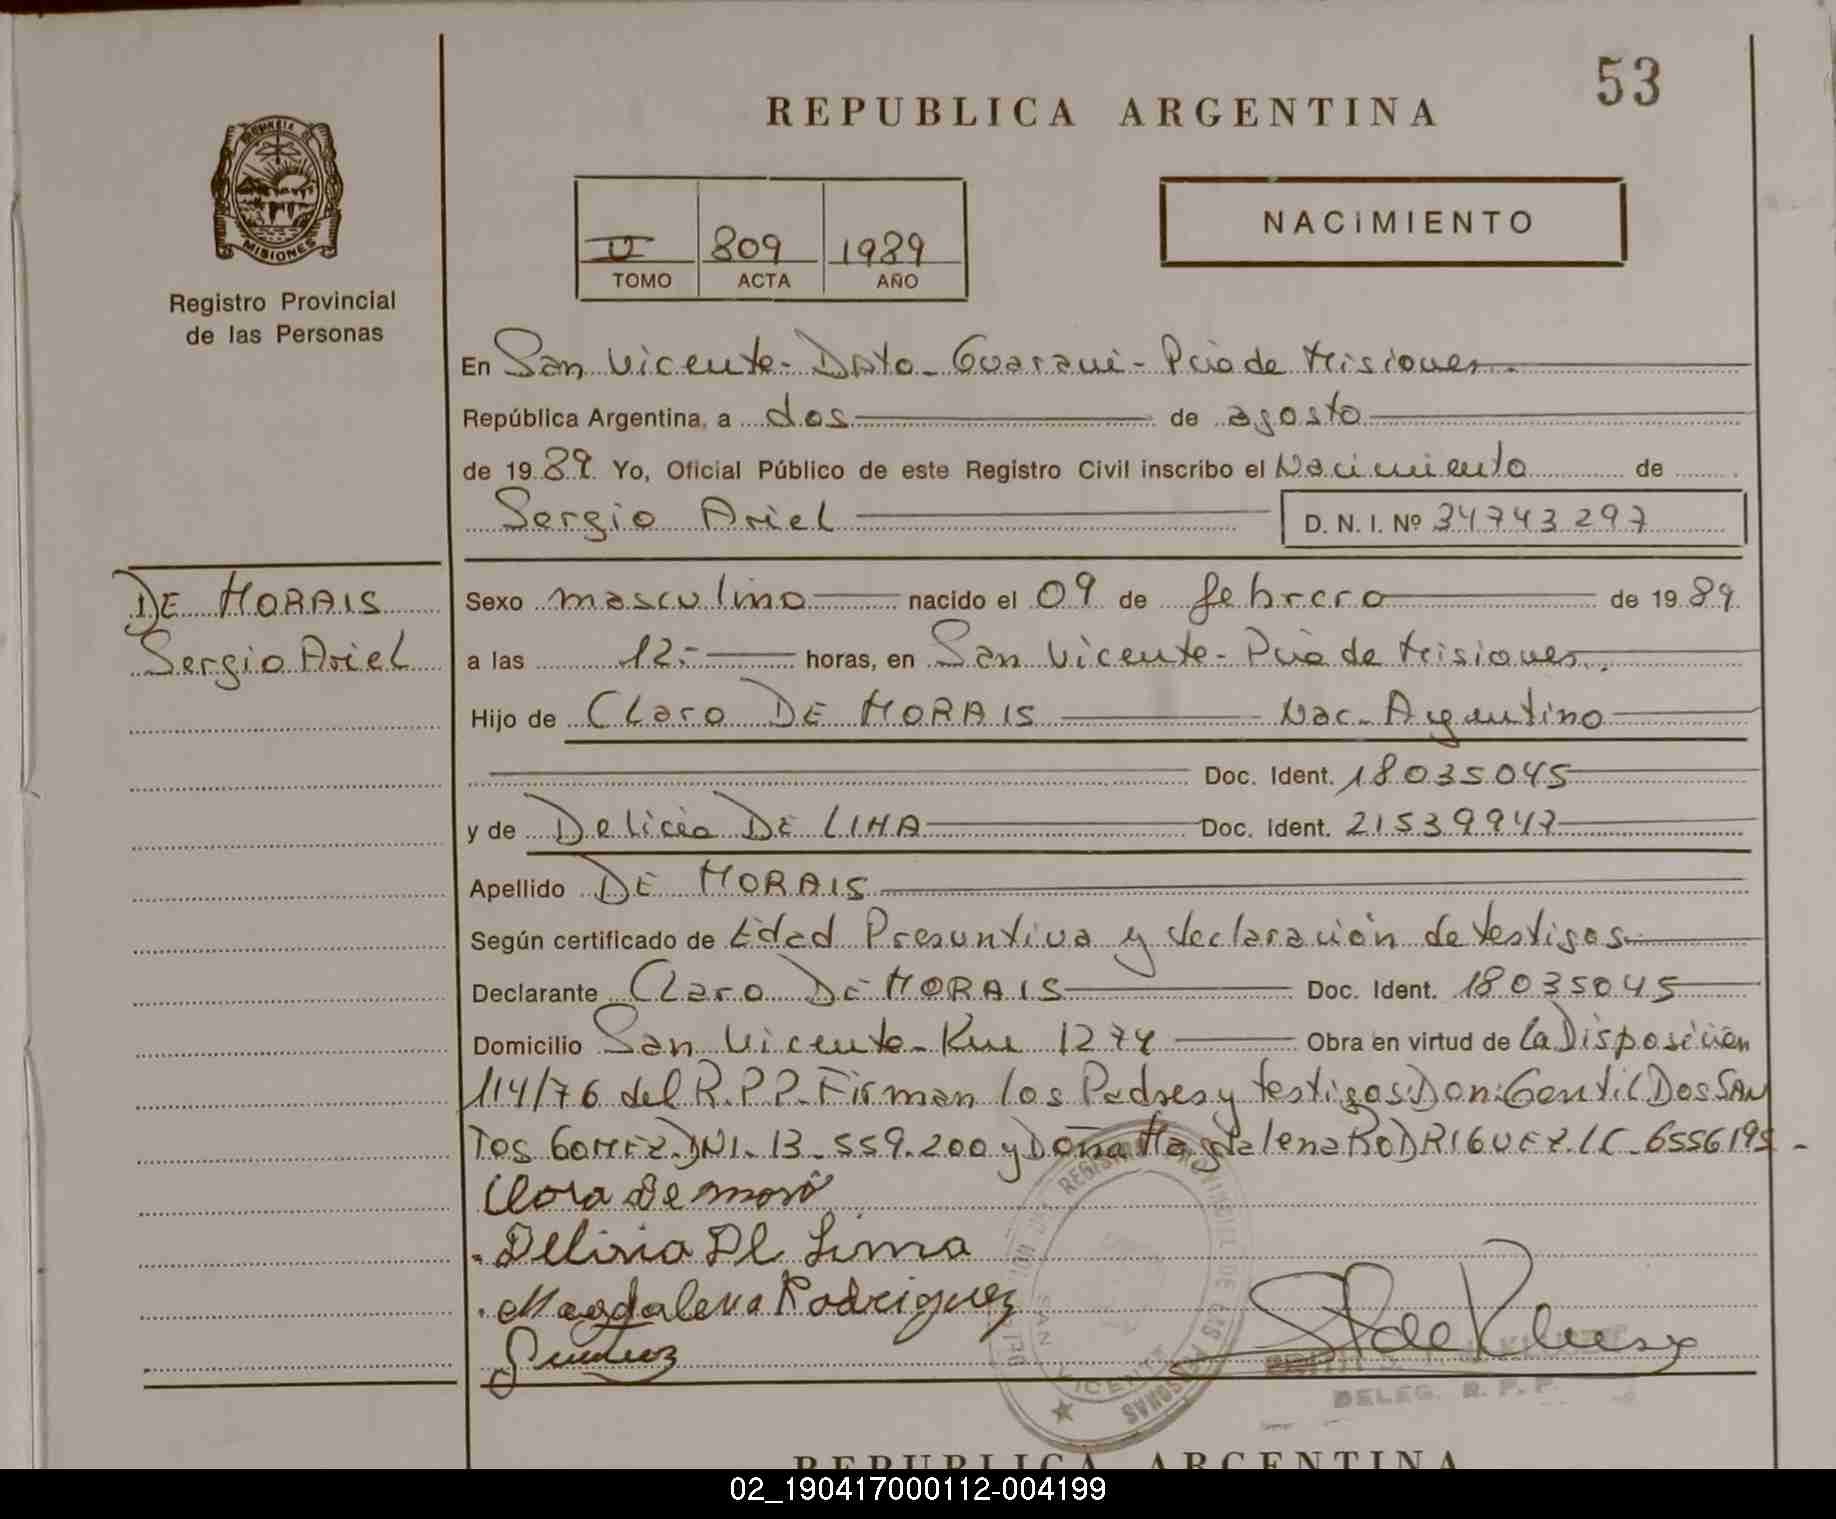 53
REPUBLICA ARGENTINA
PROVINCIA DE
MISIONES
Registro Provincial
de las Personas
II 809 1989
TOMO ACTA AÑO
NACIMIENTO
En San Vicente - Dpto - Guarani - Pcia de Misiones
República Argentina, a dos de agosto
de 1989 Yo, Oficial Público de este Registro Civil inscribo el Nacimiento de
Sergio Ariel D. N. I. Nº 34743297
DE MORAIS
Sergio Ariel
Sexo masculino nacido el 09 de febrero de 1989
a las 12.- horas, en San Vicente - Pcia de Misiones.
Hijo de Claro DE MORAIS Nac. Argentino
Doc. Ident. 18035045
y de Delicia DE LIMA Doc. Ident. 21539947
Apellido DE MORAIS
Según certificado de Edad Presuntiva y declaración de testigos.
Declarante Claro DE MORAIS Doc. Ident. 18035045
Domicilio San Vicente - Km 1274 Obra en virtud de la Disposición
114/76 del R.P.P. Firman los Padres y testigos: Don: Gentil DOS SAN
TOS GOMEZ. DNI. 13.559.200 y Doña Magdalena RODRIGUEZ. LC. 6556195 -
Delicia De Lima
Magdalena Rodriguez
DELEG. R. P. P.
REPUBLICA ARGENTINA
02_190417000112-004199